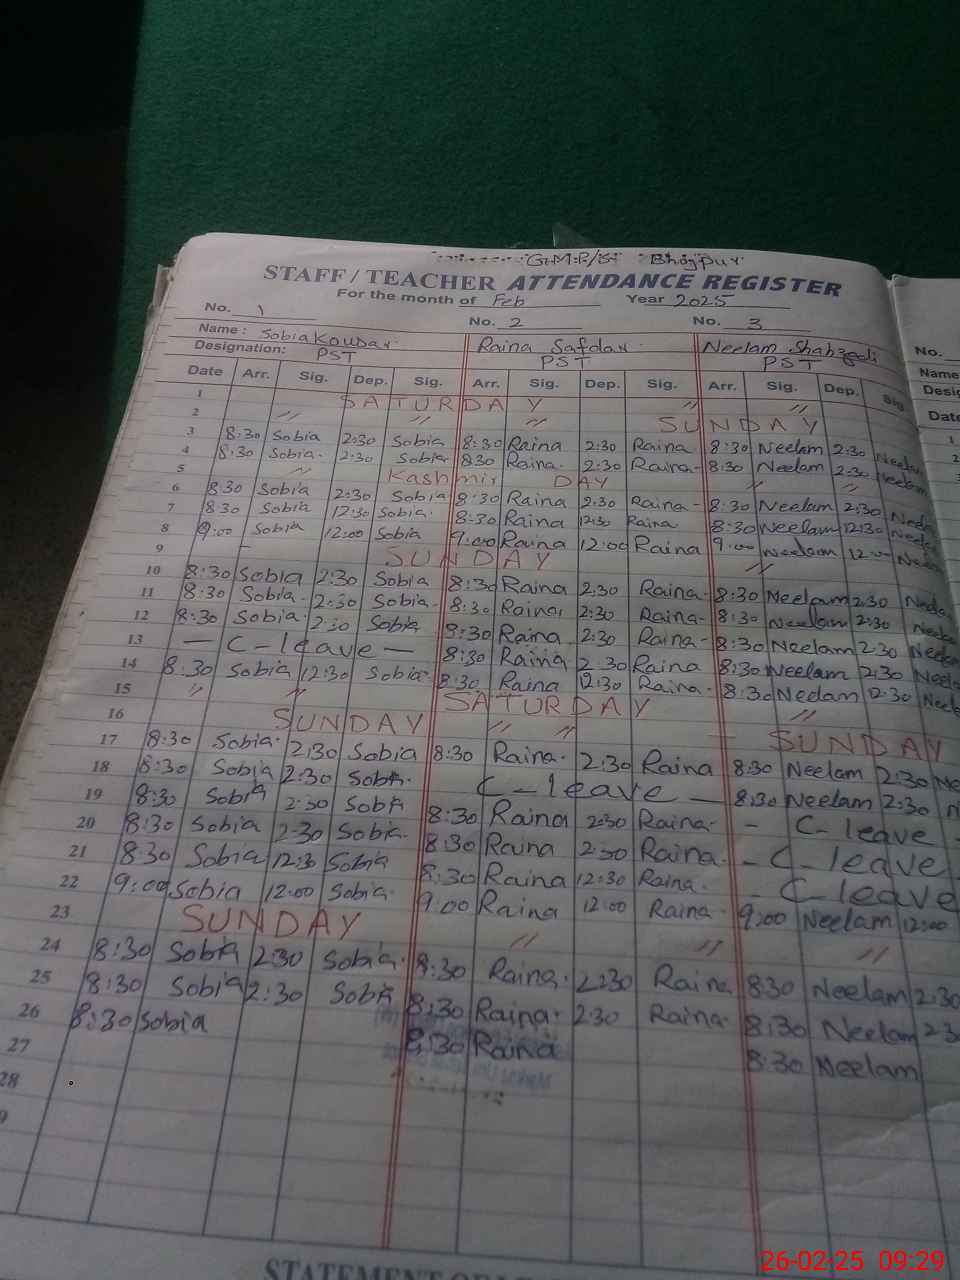 G.M.P/S Bhojpur
STAFF/TEACHER ATTENDANCE REGISTER
For the month of Feb Year 2025
No. 1 No. 2 No. 3 No.
Name: Sobia Kousar Raina Safdar Neelam Shahzadi Name
Designation: PST PST PST
Date Arr. Sig. Dep. Sig. Arr. Sig. Dep. Sig. Arr. Sig. Dep. Sig. Date
1 SATURDAY " "
2 " " " SUNDAY
3 8:30 Sobia 2:30 Sobia 8:30 Raina 2:30 Raina 8:30 Neelam 2:30 Neelam
4 8:30 Sobia. 2:30 Sobia 8:30 Raina. 2:30 Raina- 8:30 Neelam 2:30 Neelam
5 " Kashmir DAY " "
6 8:30 Sobia 2:30 Sobia 8:30 Raina 2:30 Raina- 8:30 Neelam 2:30
7 8:30 Sobia 12:30 Sobia. 8:30 Raina 12:30 Raina 8:30 Neelam 12:30
8 9:00 Sobia 12:00 Sobia 9:00 Raina 12:00 Raina 9:00 Neelam 12:00
9 SUNDAY "
10 8:30 Sobia 2:30 Sobia 8:30 Raina 2:30 Raina. 8:30 Neelam 2:30
11 8:30 Sobia. 2:30 Sobia. 8:30 Raina 2:30 Raina- 8:30 Neelam 2:30
12 8:30 Sobia 2:30 Sobia 8:30 Raina 2:30 Raina- 8:30 Neelam 2:30
13 — C-leave — 8:30 Raina 2:30 Raina 8:30 Neelam 2:30
14 8:30 Sobia 12:30 Sobia. 8:30 Raina 12:30 Raina. 8:30 Neelam 12:30
15 " " SATURDAY "
16 SUNDAY " " SUNDAY
17 8:30 Sobia. 2:30 Sobia 8:30 Raina. 2:30 Raina 8:30 Neelam 2:30
18 8:30 Sobia 2:30 Sobia C-leave — 8:30 Neelam 2:30
19 8:30 Sobia 2:30 Sobia 8:30 Raina 2:30 Raina. - C-leave -
20 8:30 Sobia 2:30 Sobia. 8:30 Raina 2:30 Raina. - C-leave
21 8:30 Sobia 12:30 Sobia 8:30 Raina 12:30 Raina. - C-leave
22 9:00 Sobia 12:00 Sobia. 9:00 Raina 12:00 Raina. 9:00 Neelam 12:00
23 SUNDAY " " "
24 8:30 Sobia 2:30 Sobia. 8:30 Raina. 2:30 Raina 8:30 Neelam 2:30
25 8:30 Sobia 2:30 Sobia 8:30 Raina. 2:30 Raina. 8:30 Neelam 2:30
26 8:30 Sobia 8:30 Raina 8:30 Neelam
27
28
26-02-25 09:29